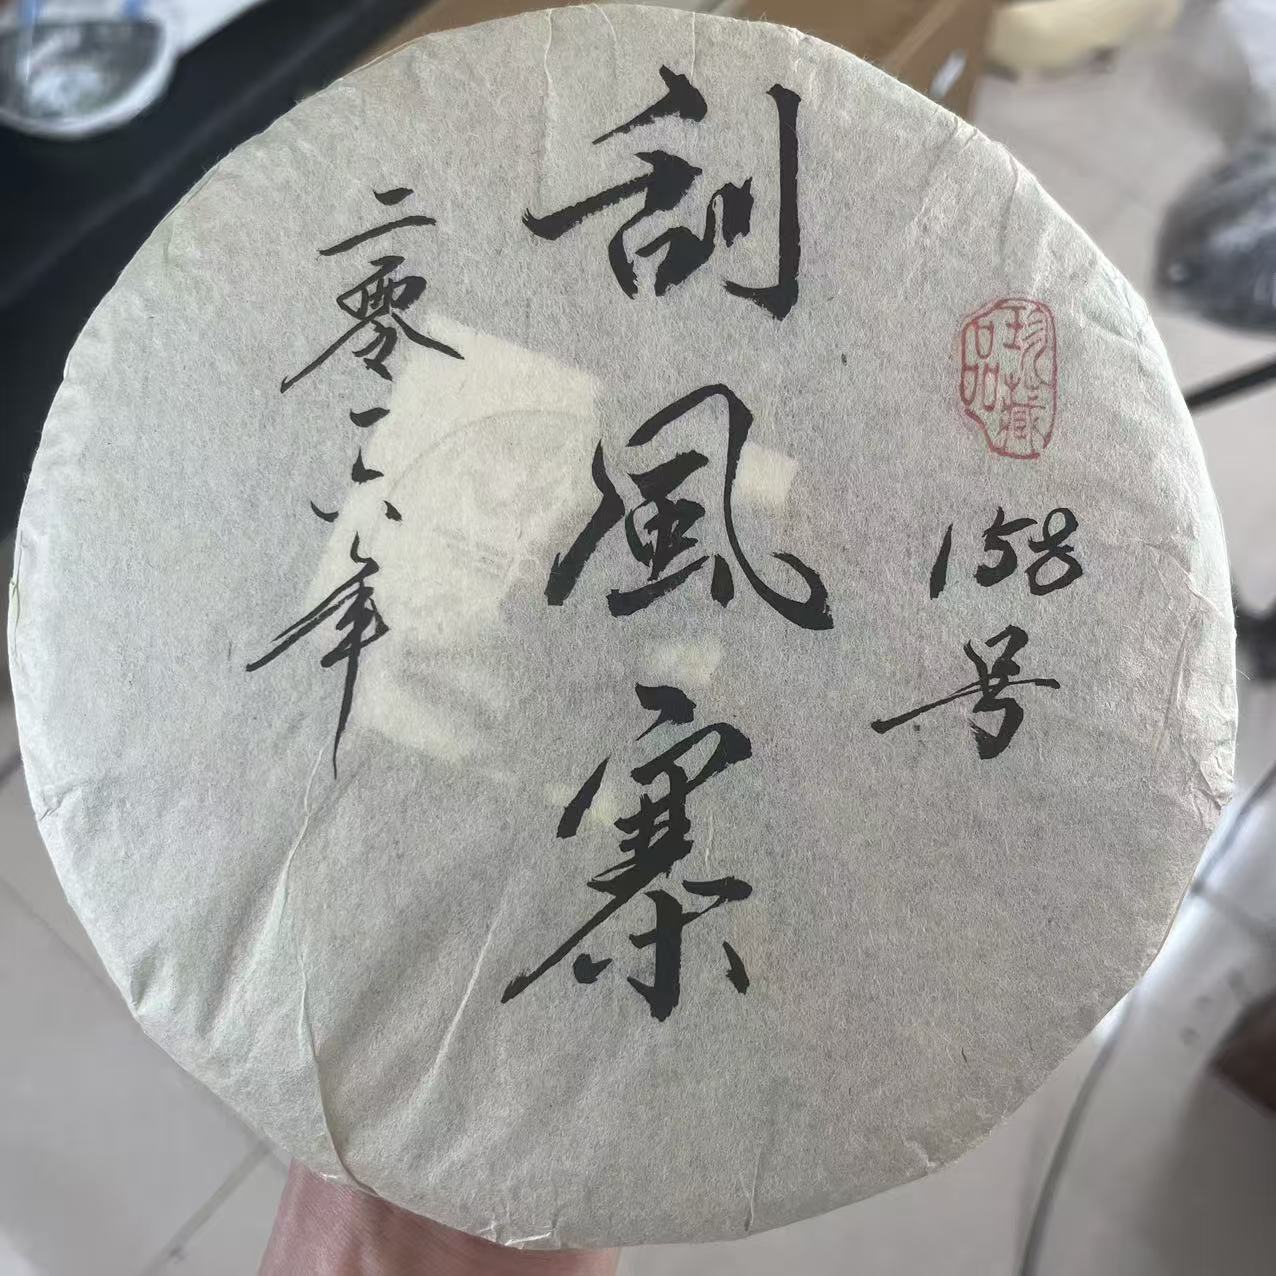 珍藏品
158号
刮風寨
二零一六年